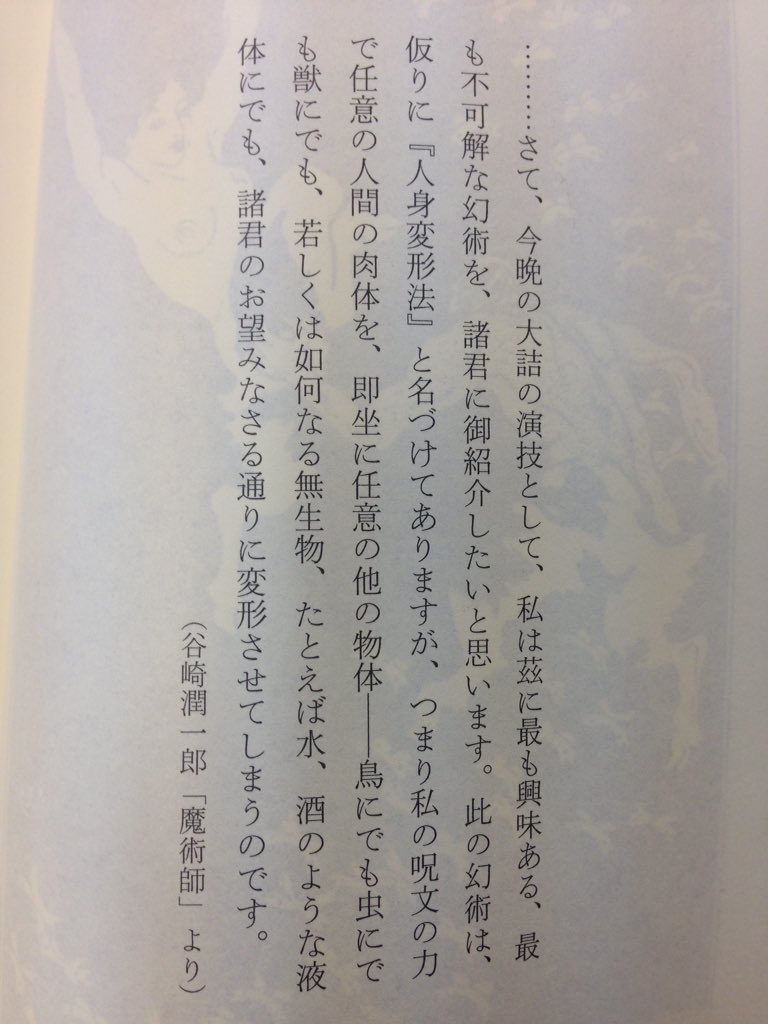 ………さて、今晩の大詰の演技として、私は茲に最も興味ある、最
も不可解な幻術を、諸君に御紹介したいと思います。此の幻術は、
仮りに『人身変形法』と名づけてありますが、つまり私の呪文の力
で任意の人間の肉体を、即坐に任意の他の物体――鳥にでも虫にで
も獣にでも、若しくは如何なる無生物、たとえば水、酒のような液
体にでも、諸君のお望みなさる通りに変形させてしまうのです。
(谷崎潤一郎「魔術師」より)